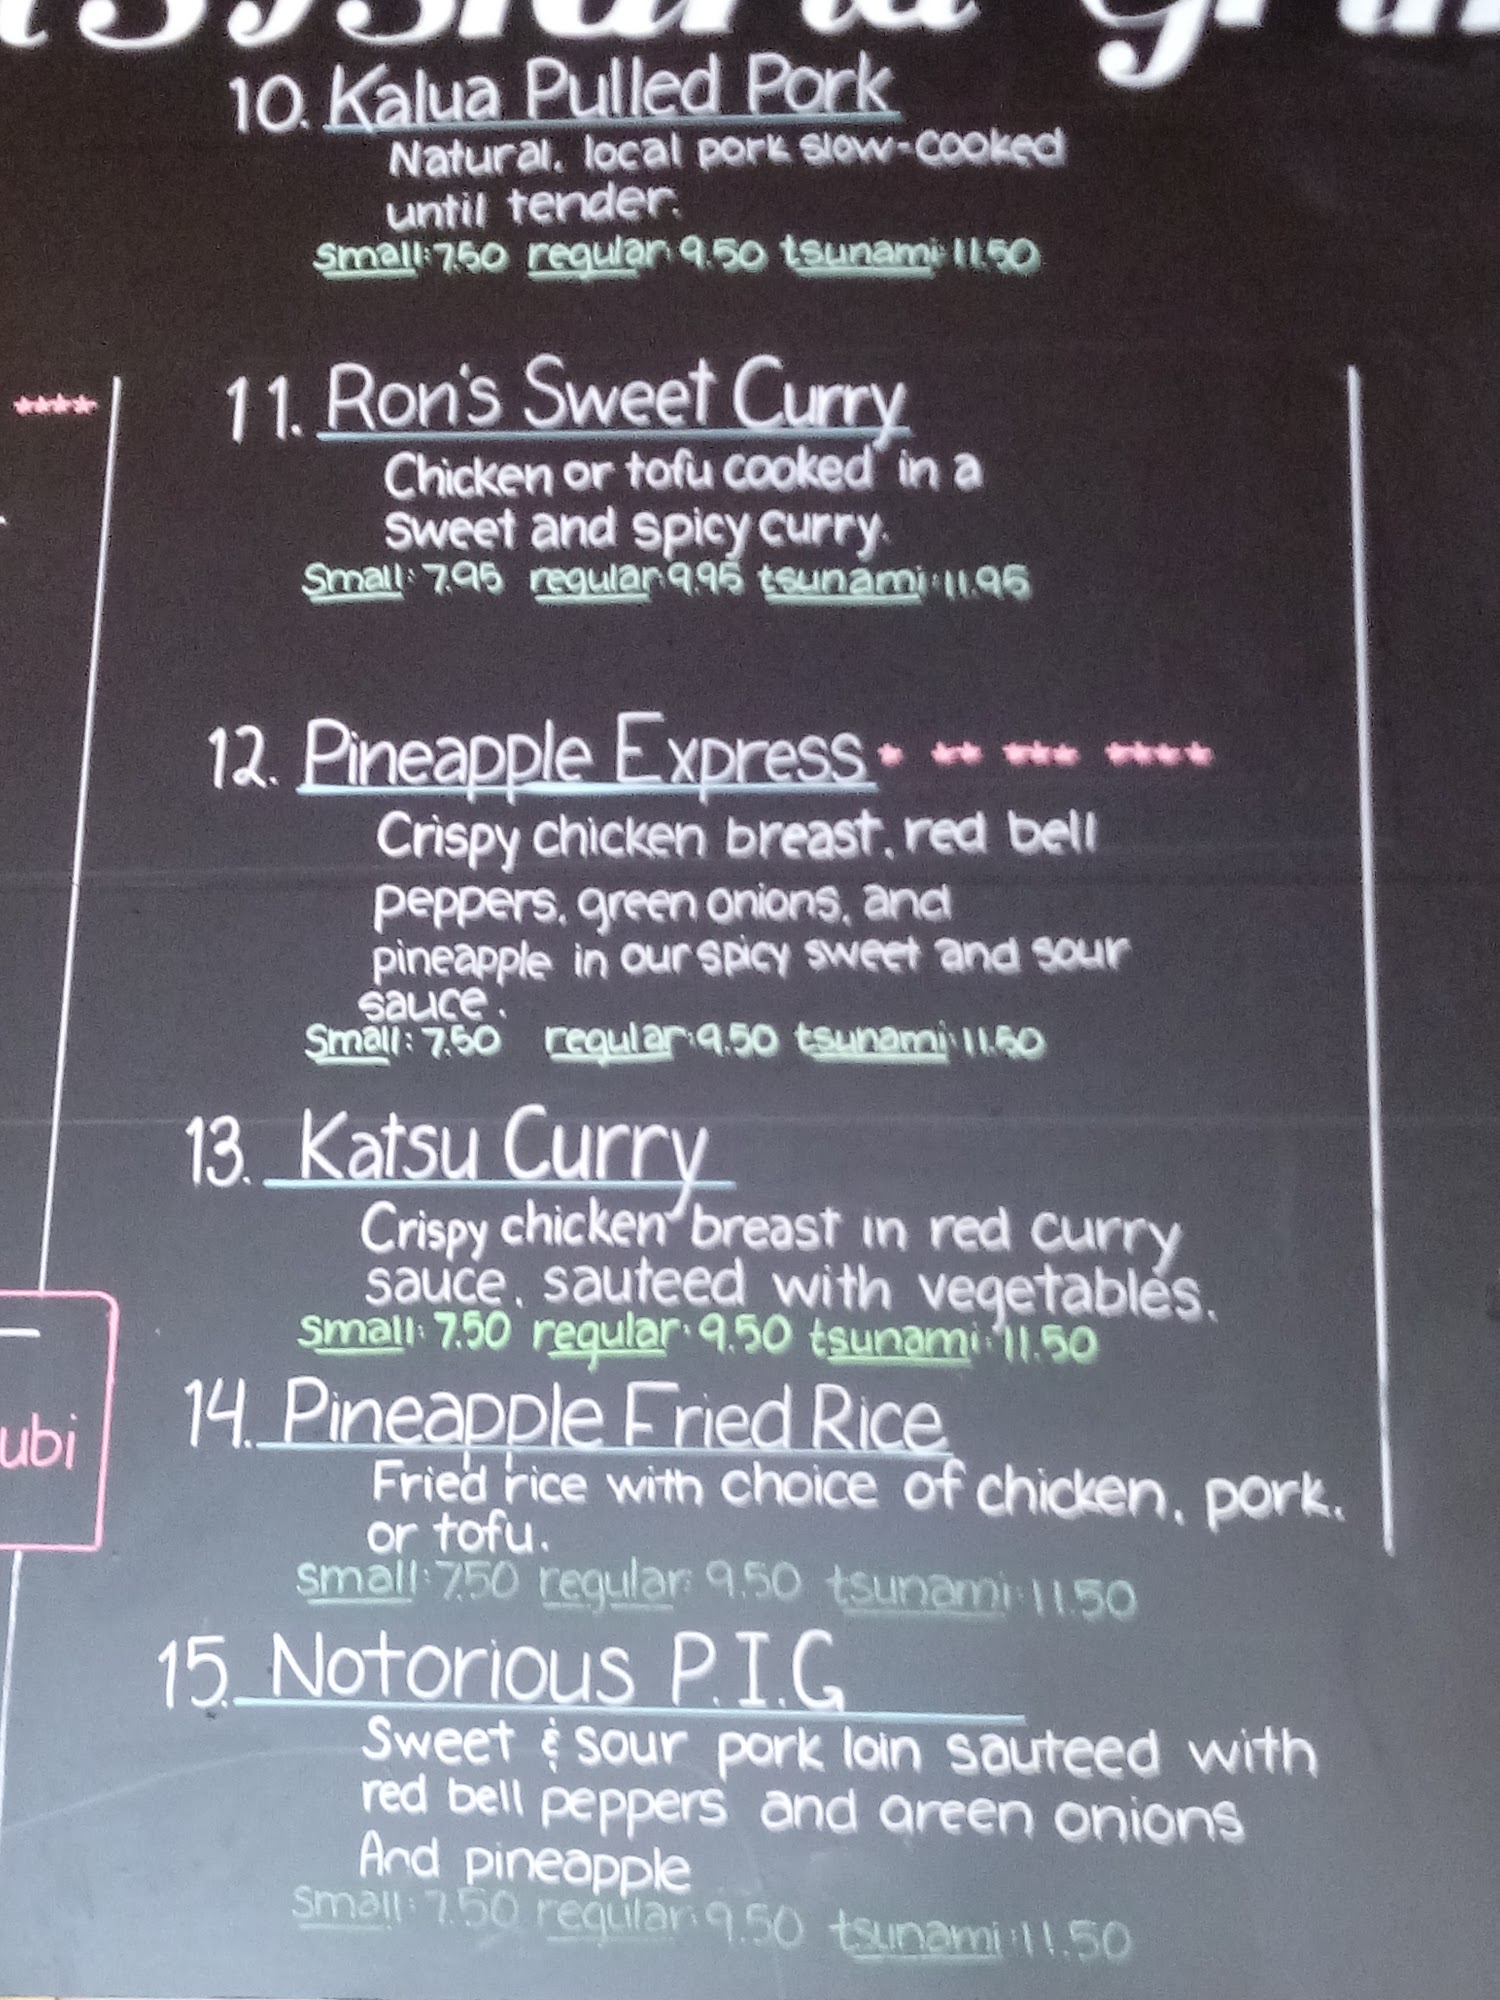 10. Kalua Pulled Pork
Natural, local pork slow-cooked
until tender.
small: 7.50 regular: 9.50 tsunami: 11.50
****
11. Ron's Sweet Curry
Chicken or tofu cooked in a
sweet and spicy curry.
Small: 7.95 regular: 9.95 tsunami: 11.95
12. Pineapple Express * ** *** ****
Crispy chicken breast, red bell
peppers, green onions, and
pineapple in our spicy sweet and sour
sauce.
Small: 7.50 regular: 9.50 tsunami: 11.50
13. Katsu Curry
Crispy chicken breast in red curry
sauce, sauteed with vegetables.
Small: 7.50 regular: 9.50 tsunami: 11.50
14. Pineapple Fried Rice
Fried rice with choice of chicken, pork,
or tofu.
small: 7.50 regular: 9.50 tsunami: 11.50
ubi
15. Notorious P.I.G
Sweet & sour pork loin sauteed with
red bell peppers and green onions
And pineapple
Small: 7.50 regular: 9.50 tsunami: 11.50